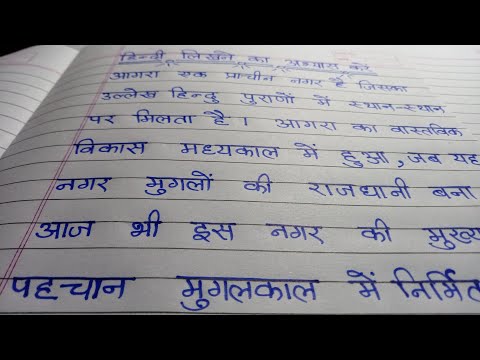 हिन्दी लिखने का अभ्यास करें
आगरा एक प्राचीन नगर है जिसका
उल्लेख हिन्दु पुराणों में स्थान-स्थान
पर मिलता है। आगरा का वास्तविक
विकास मध्यकाल में हुआ, जब यह
नगर मुगलों की राजधानी बना
आज भी इस नगर की मुख्य
पहचान मुगलकाल में निर्मित